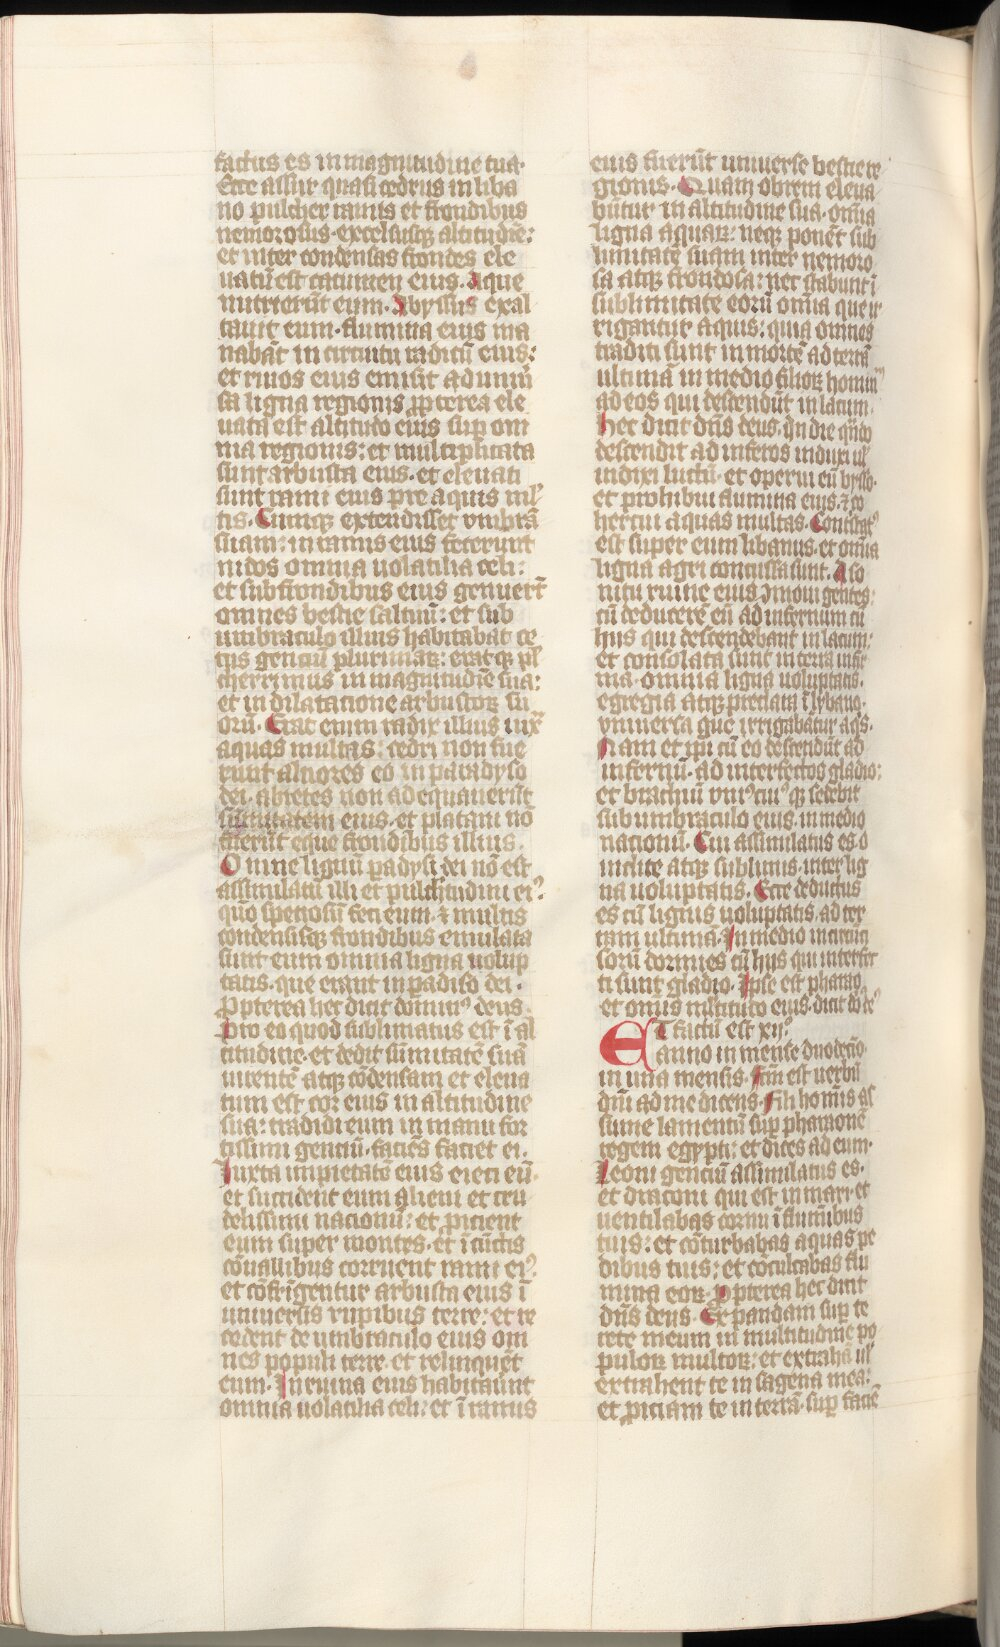 factus es in magnitudine tua·
Ecce assur quasi cedrus in liba
no pulcher ramis et frondibus
nemorosus· excelsusqꝫ altitudīe:
et inter condensas frondes ele
uatū est cacumen eius. Aque
nutrierūt eum. Abyssus exal
tauit eum· flumina eius ma
nabāt in circuitu radicū eius:
et riuos eius emisit ad uniū
sa ligna regionis ꝓpterea ele
uata est altitudo eius suꝑ om
nia regionis: et multiplicata
sunt arbusta eius· et eleuati
sunt rami eius pre aquis ml
tis. Cumqꝫ extendisset vmbrā
suam: in ramis eius fecerunt
nidos omnia uolatilia celi:
et sub frondibus eius genuerūt
omnes bestie saltuū: et sub
umbraculo illius habitabat ce
tus genciū plurimaꝝ: eratqꝫ pl
cherrimus in magnitudīe sua:
et in dilatacione arbustoꝝ su
orū. Erat enim radix illius iux
aquas multas: cedri non fue
runt alciores eo in paradyso
dei· abietes non adequauerūt
sūmitatem eius· et platani nō
fuerūt eque frondibus illius.
Omne lignū ꝑadysi dei nō est
assimulatū illi et pulchritudini ei᾿.
quō speciosū feci eum· ⁊ multis
condensisqꝫ frondibus emulata
sunt eum omnia ligna uolup
tatis· que erant in ꝑadiso dei·
Ꝓpterea hec dicit dominꝰ deus.
Pro eo quod sublimatus est ī al
titudine· et dedit sūmitatē suā
uirentē atqꝫ cōdensam et eleua
tum est cor eius in altitudine
sua: tradidi eum in manu for
tissimi genciū· faciēs faciet ei.
Iuxta impietatē eius eieci eū·
et succident eum alieni et cru
delissimi nacionū: et ꝓicient
eum super montes· et ī cūctis
cōuallibus corruent rami eiꝰ.
et cōfrīgentur arbusta eius ī
uniuersis rupibus terre: et re
cedent de umbraculo eius om
nes populi terre· et relinquēt
eum. In ruina eius habitaūnt
omnia uolatilia celi: et ī ramis
eius fuerūt uniuerse bestie re
gionis. Quam obrem eleua
būtur in altitudine sua· omīa
ligna aquaꝝ: neqꝫ ponēt sub
limitatē suam inter nemoro
sa atqꝫ frondosa: nec stabunt ī
sublimitate eorū omīa que ir
rigantur aquis: quia omnes
traditi sunt in mortē ad terrā
ultimā in medio filioꝝ homīnū
ad eos qui descendūt in lacum.
Hec dicit dn̄s deus. In die qn̄do
descendit ad inferos induxi ul
induxi luctū· et operui eū bysso·
et prohibui flumina eius· ⁊ co
hercui aquas multas. Contristatꝰ
est super eum libanus· et omīa
ligna agri concussa sunt. A so
nitu ruine eius ↄmoui gentes:
cū deducerē eū ad infernum cū
hijs qui descendebant in lacum:
et consolata sunt in terra infir
ma· omnia ligna uoluptatis.
egregia atqꝫ preclara ī lybano·
vniuersa que irrigabātur aqͥs·
Nam et ip̄i cū eo descendūt ad
infernū· ad interfectos gladio:
et brachiū vniꝰcuiꝰqꝫ sedebit
sub umbraculo eius· in medio
nacionū. Cui assimilatus es o
inclite atqꝫ sublimis· inter lig
na uoluptatis. Ecce deductus
es cū lignis uoluptatis· ad ter
ram ultimā. In medio incircūci
sorū dormies cū hijs qui interfec
ti sunt gladio. Ipse est pharao
et omīs multitudo eius· dicit dn̄s deꝰ
ET factū est xijͦ·
anno in mense duodecīo·
in una mensis. fcm̄ est uerbū
dn̄i ad me dicens. Fili homīs as
sume lamentū suꝑ pharaonē
regem egypti: et dices ad eum·
Leoni genciū assimilatus es·
et draconi qui est in mari· et
uentilabas cornu ī flumībus
tuis: et cōturbabas aquas pe
dibus tuis: et cōculcabas flu
mina eoꝝ. Ꝓpterea hec dicit
dn̄s deus. Expandam suꝑ te
rete meum in multitudine po
puloꝝ multoꝝ: et extrahā ul
extrahent te in sagena mea:
et ꝓiciam te in terrā· suꝑ faciē